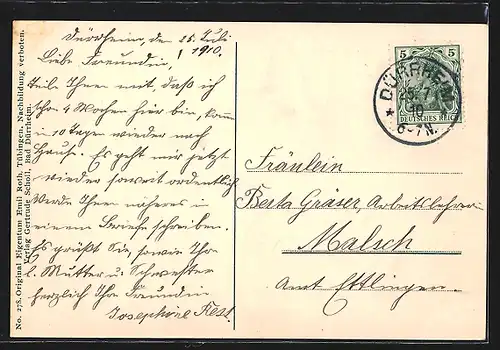 No. 278. Original Eigentum Emil Roth, Tübingen, Nachbildung verboten.
Verlag Gertrude Scholl, Bad Dürrheim.
Dürrheim, den 25. Juli
1910.
Liebe Freundin,
Teile Ihnen mit, daß ich
schon 4 Wochen hier bin, komme
in 10 Tagen wieder nach
Hause. Es geht mir jetzt
wieder soweit ordentlich
Werde Ihnen näheres in
einem Briefe schreiben.
Es grüßt Sie, sowie Ihr
l. Mutter u. Schwester
herzlich Ihr Freundin
Josephine
5 5
DEUTSCHES REICH
DÜRRHEIM
25.7.
10
* 6-7N.
Fräulein
Berta Gräser, Arbeitslehrerin
Malsch
Amt Ettlingen.